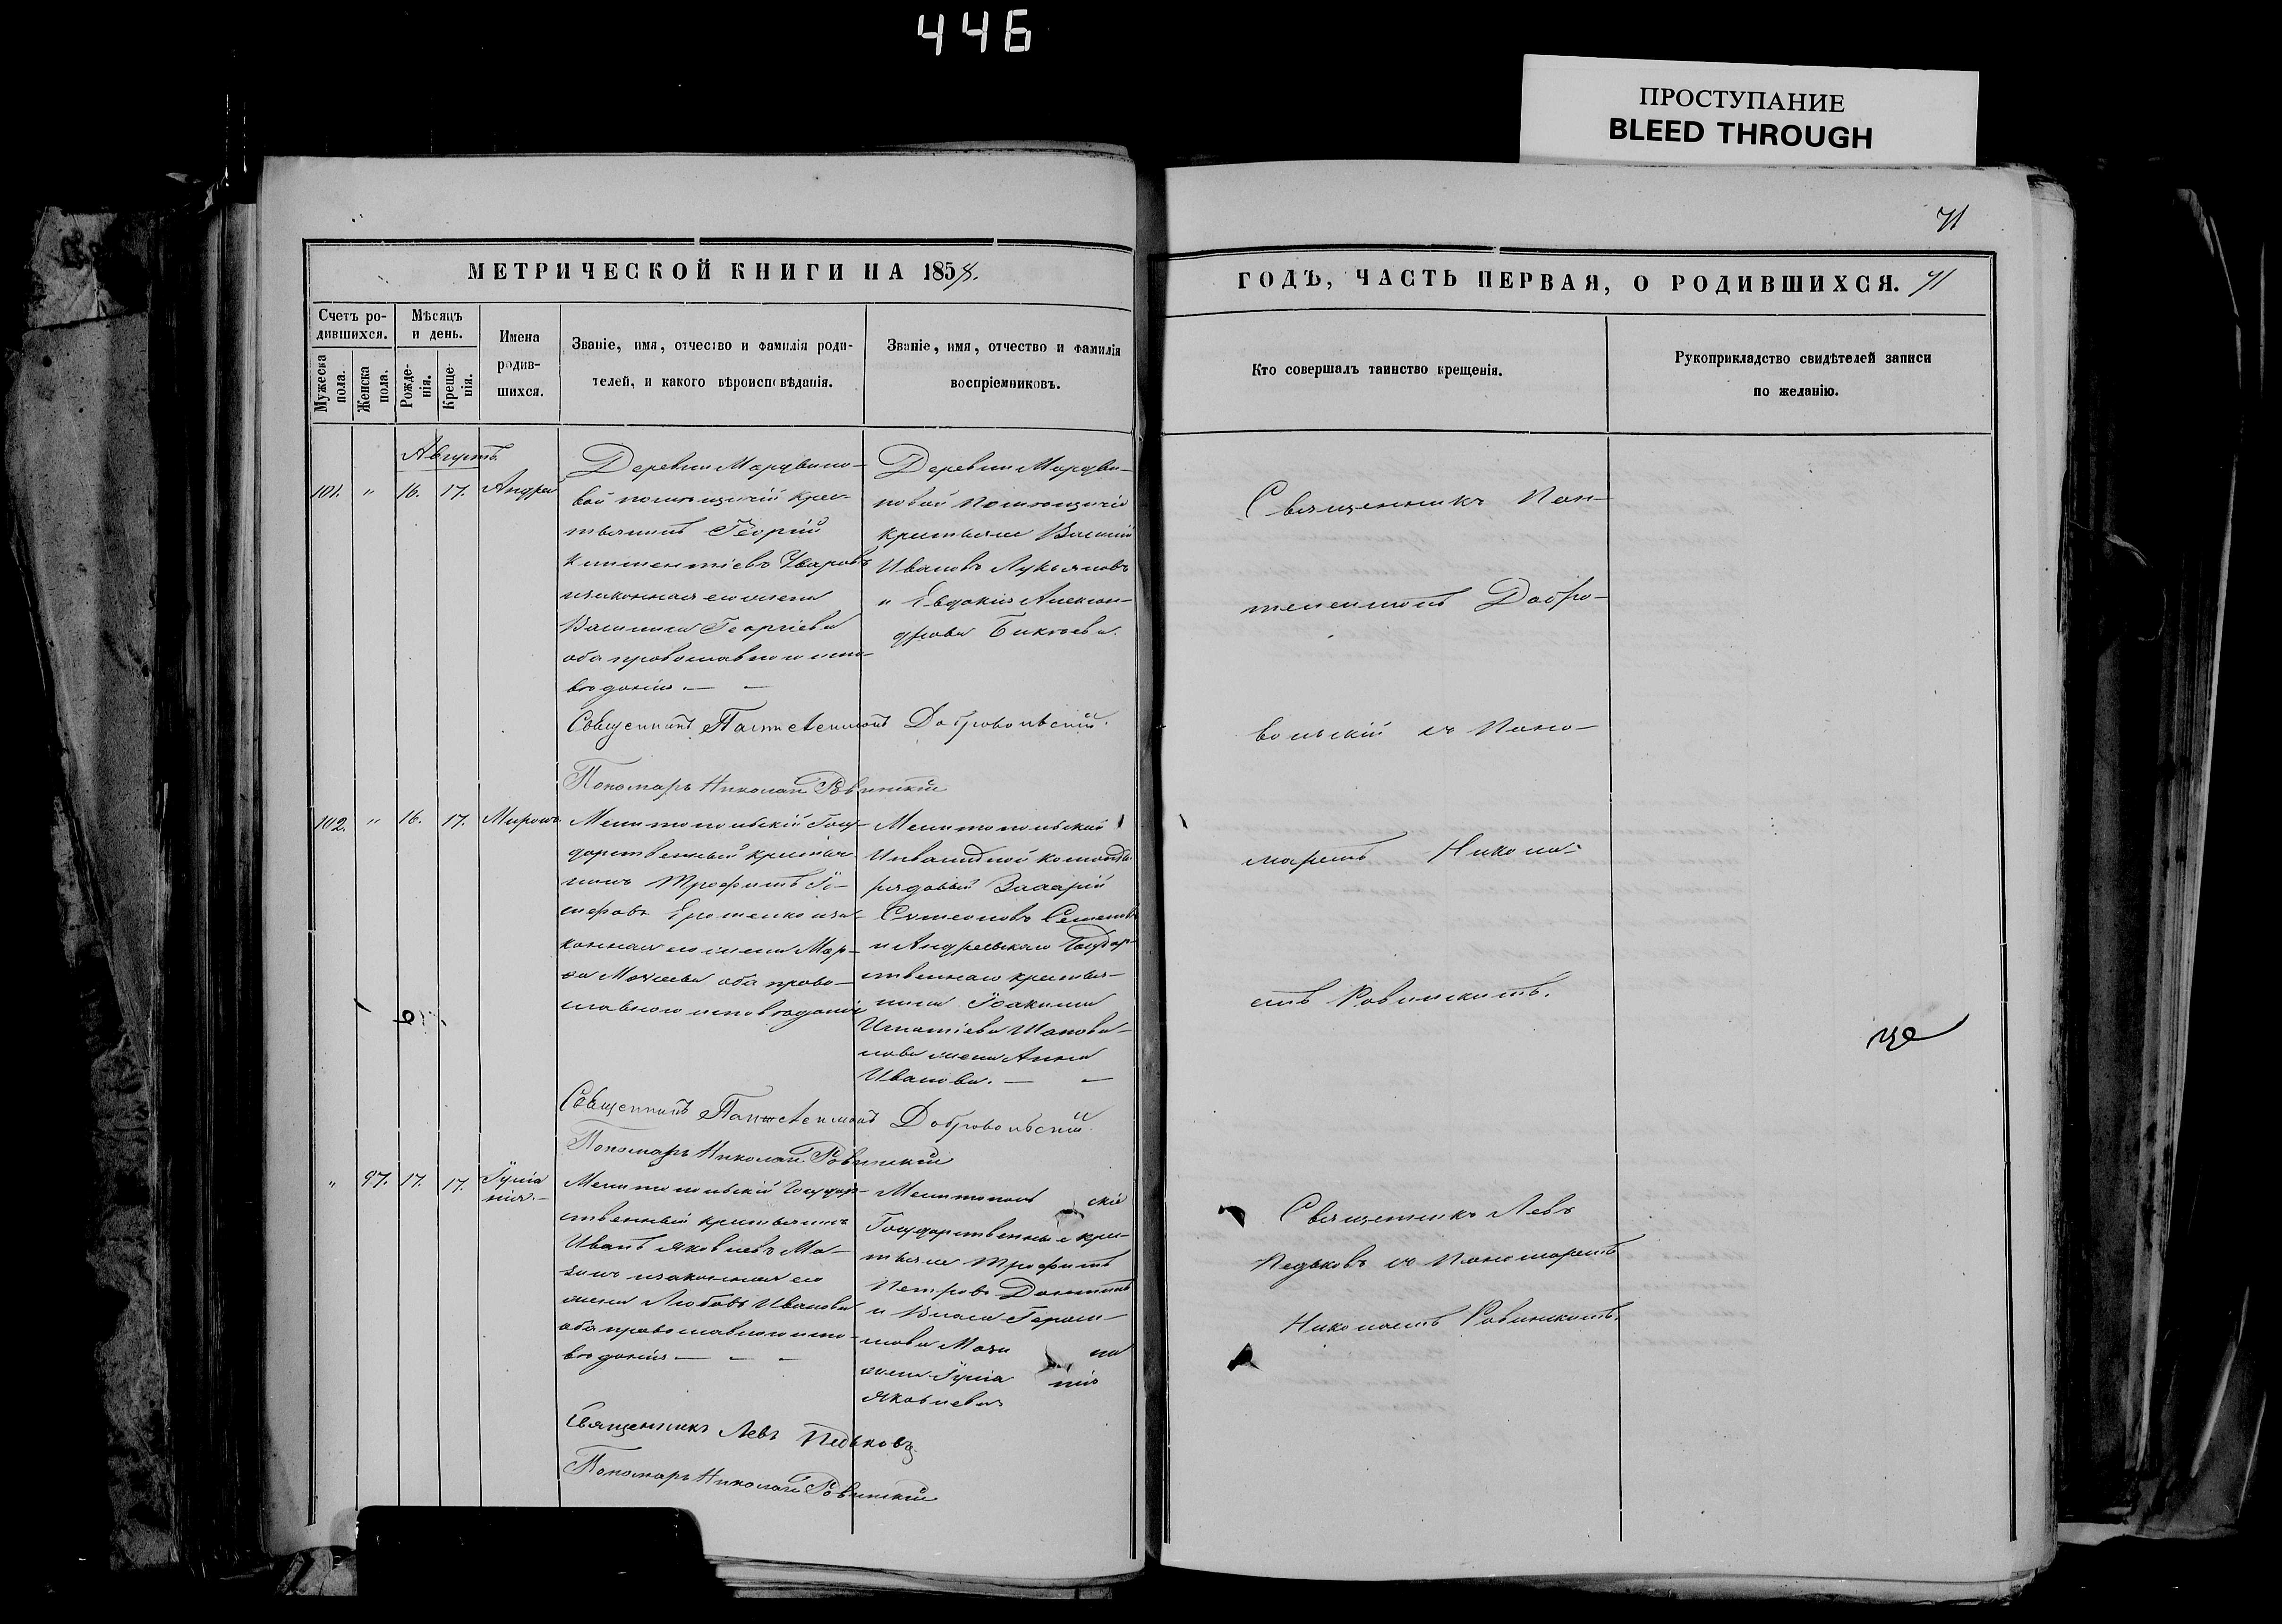 446
ПРОСТУПАНИЕ
BLEED THROUGH
МЕТРИЧЕСКОЙ КНИГИ НА 1858.
Счетъ ро-
дившихся.
Мужеска
пола.
Женска
пола.
Мѣсяцъ
и день.
Рожде-
нія.
Креще-
нія.
Имена
родив-
шихся.
Званіе, имя, отчество и фамилія роди-
телей, и какого вѣроисповѣданія.
Званіе, имя, отчество и фамилія
воспріемниковъ.
Августъ.
101. " 16. 17. Андрей
вой помѣщичій крес-
тьянинъ Георгій
Климентіевъ Уваровъ
изаконная его жена
Василиса Георгіева
оба православнаго испо-
вѣданія. — —
новой помѣщичіе
крестьяне Василій
Ивановъ Лукьяновъ
и Евдокія Алексан-
дрова
Священникъ Пантелеимонъ Добровольскій.
Пономарь Николай Ровинскій
102. " 16. 17. Миронъ.
Мелитопольскій Госу-
дарственный крестья-
нинъ Трофимъ Іо-
сифовъ Ерошенко иза-
конная его жена Мар-
ѳа Моисеева оба право-
славнаго исповѣданія
Мелитопольской
Инвалидной команды
рядовый Захарій
Симеоновъ
и Андреевскаго Государ-
ственнаго крестья-
нина Іоакима
Игнатіева Шапова-
лова жена Анна
Иванова. — —
Священникъ Пантелеимонъ Добровольскій
Пономарь Николай Ровинскій
" 97. 17. 17. Іуліа
нія. —
Мелитопольскій Государ-
ственный крестьянинъ
Иванъ Яковлевъ Ма-
зинъ изаконная его
жена Любовь Иванова
оба православнаго испо-
вѣданія — — —
Мелитополь скіе
Государственные крес-
тьяне Трофимъ
Петровъ
и Власа Гераси-
мова Мази на
жена Іуліа нія
Яковлева
Священникъ Левъ Педьковъ
Пономарь Николай Ровинскій
71
ГОДЪ, ЧАСТЬ ПЕРВАЯ, О РОДИВШИХСЯ. 71
Кто совершалъ таинство крещенія.
Рукоприкладство свидѣтелей записи
по желанію.
Священникъ Пан-
телеимонъ Добро-
вольскій съ Поно-
маремъ Никола-
емъ Ровинскимъ.
це
Священникъ Левъ
Педьковъ съ Пономаремъ
Николаемъ Ровинскимъ.